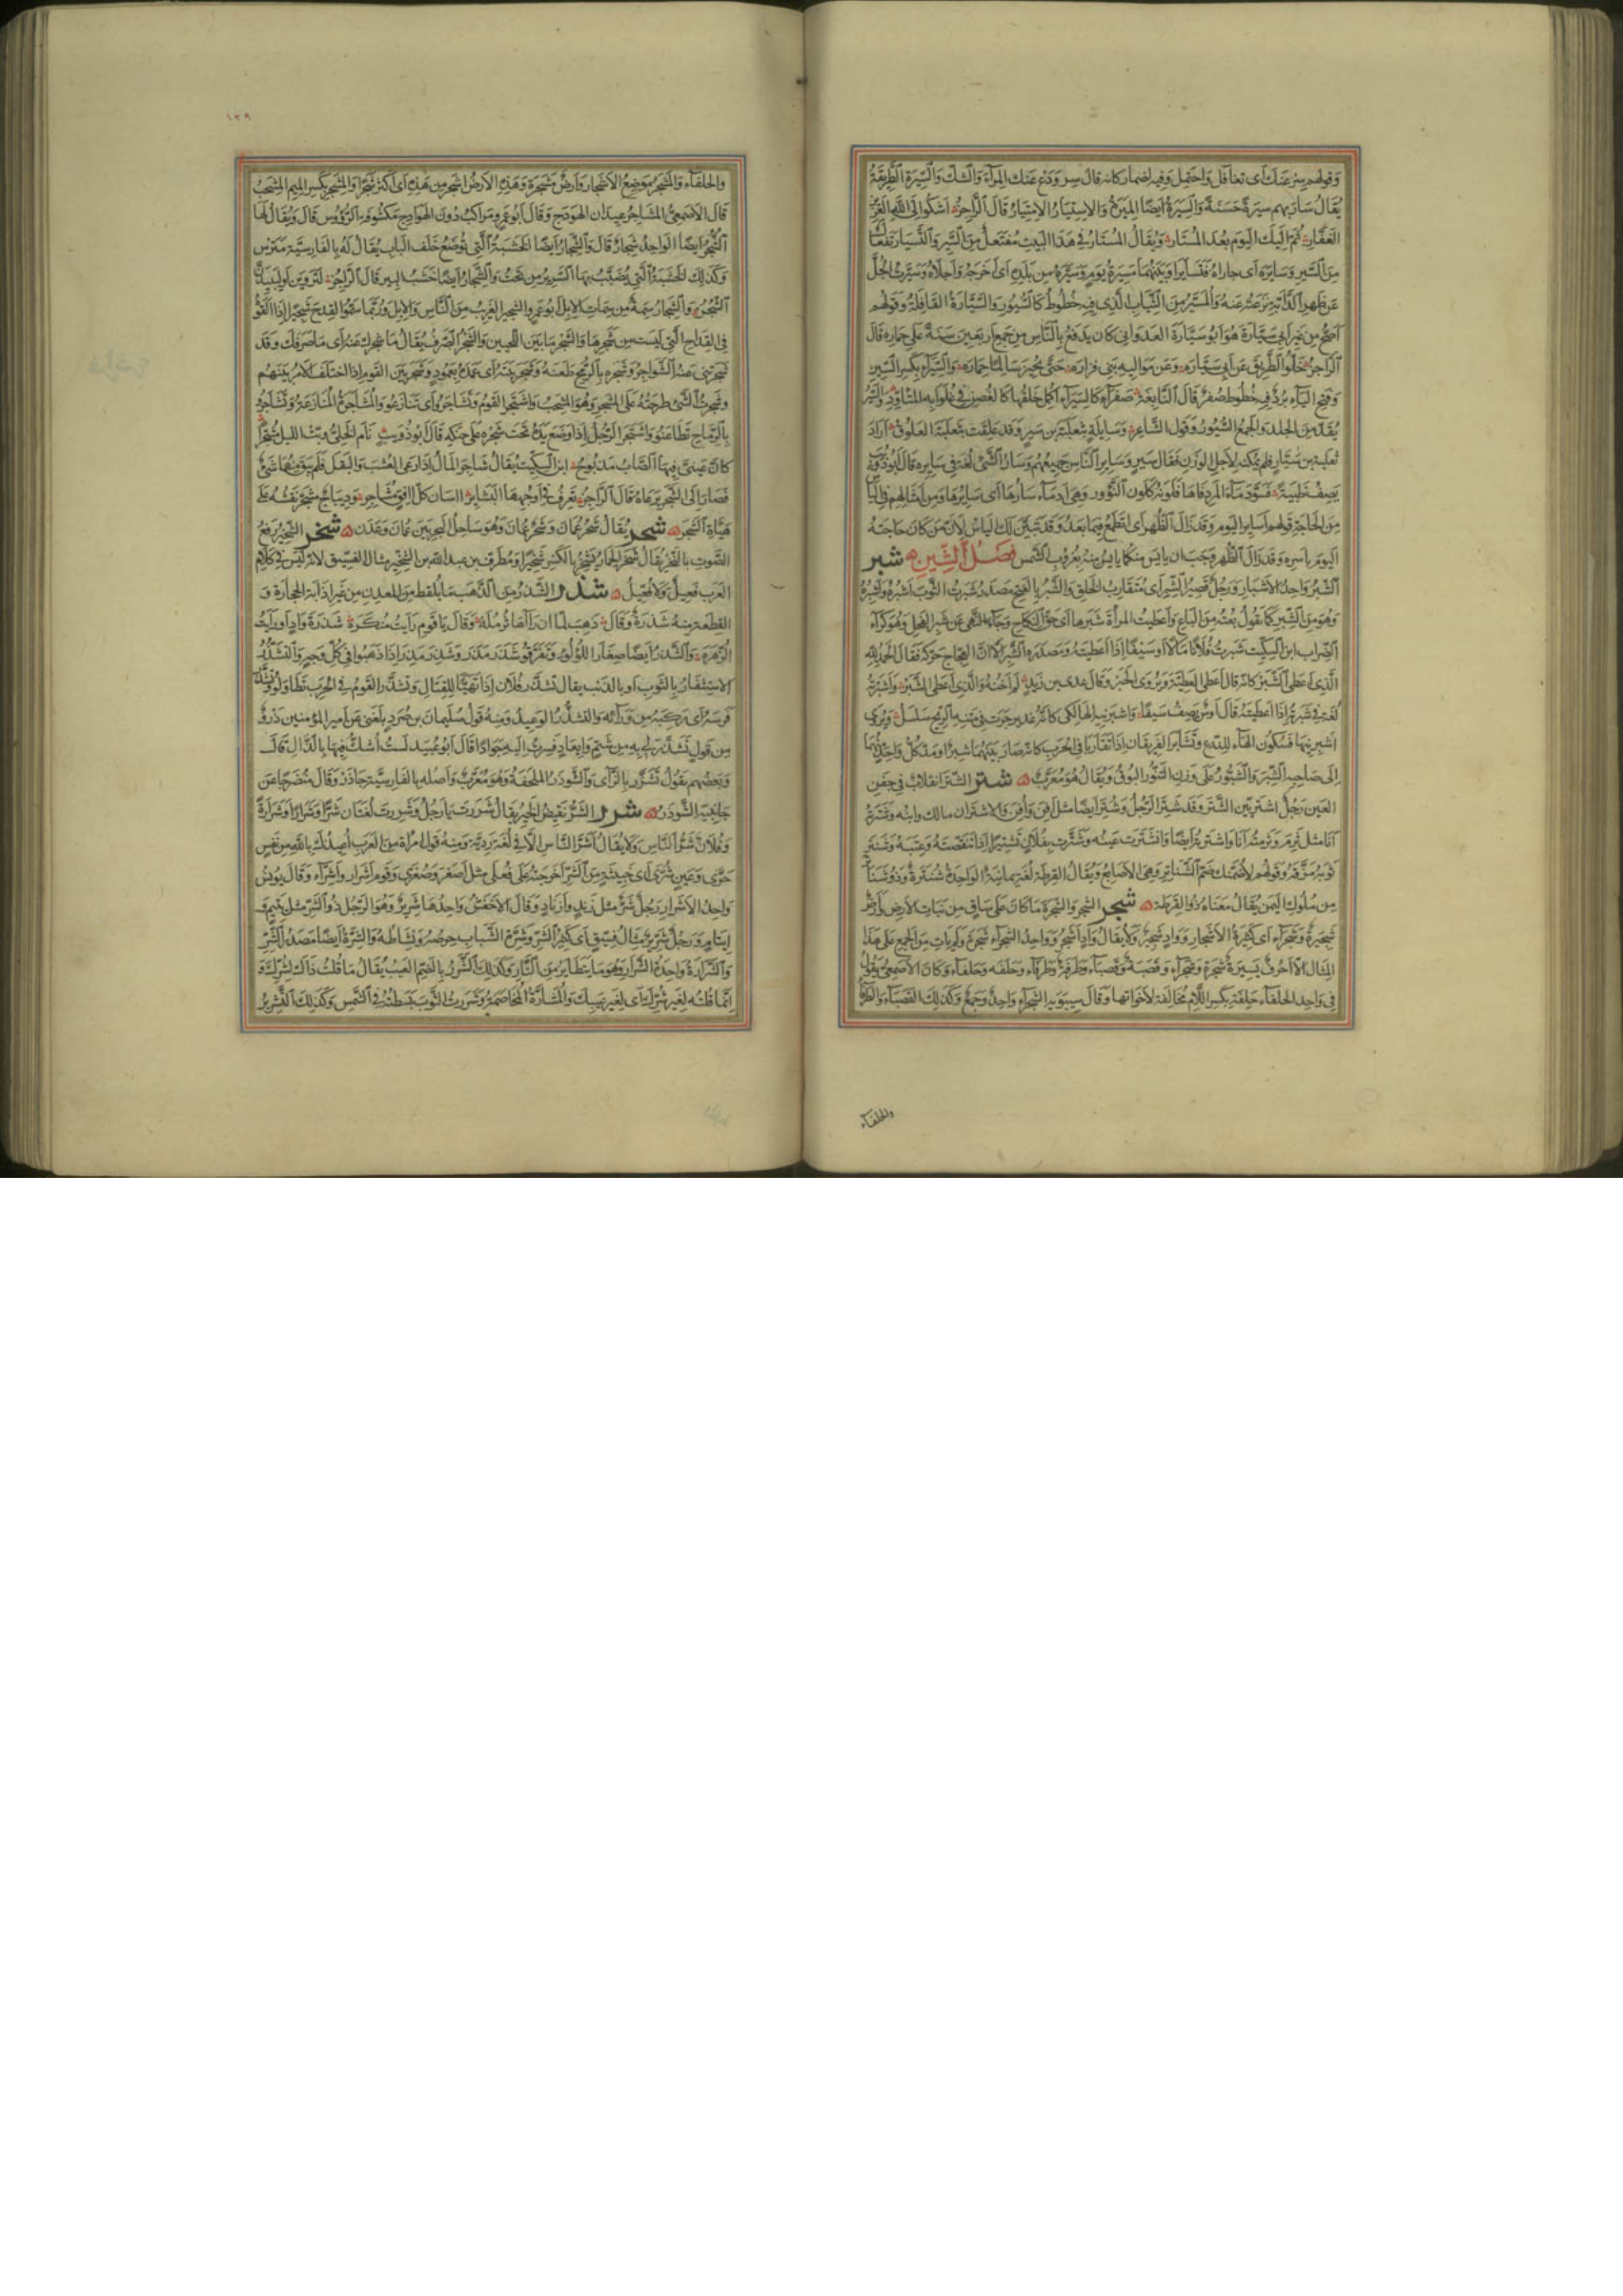 وقولهم سر عنك أي تغافل واحتمل وفيه اضمار كانه قال سر ودع عنك المراء والشك والسيرة الطريقة
يقال سار بهم سيرة حسنة والسيرة ايضا الميرة والاستيار الامتيار قال الراجز اشكو الى الله العزيز
الغفار ثم اليك اليوم بعد المستار ويقال المستار في هذا البيت مفتعل من السير والتسيار تفعال
من السير وسايره أي جاراه فتسايرا وبينهما مسيرة يوم وسيره من بلده أي اخرجه واجلاه وسيرت الجل
عن ظهر الدابة نزعته عنه والمسير من الثياب الذي فيه خطوط كالسيور والسيارة القافلة وقولهم
اصح من عير ابي سيارة هو ابو سيارة العدواني كان يدفع بالناس من جمع اربعين سنة على حماره قال
الراجز خلوا الطريق عن ابي سياره وعن مواليه بني فزاره حتى يجيز سالما حماره والسيراء بكسر السين
وفتح الياء برد فيه خطوط صفر قال النابغة صفراء كالسيراء اكمل خلقها كالغصن في غلوائه المتاود والسير
يقد من الجلد والجمع السيور وقول الشاعر وسايلة بثعلبة بن سير وقد علقت بثعلبة العلوق اراد
ثعلبة بن سيار فلم يمكنه لاجل الوزن فقال سير وساير الناس جميعهم وسار الشئ لغة في سايره قال ابو ذؤيب
يصف ظبية فسود ماء المرد فاها فلونه كلون النؤور وهي ادماء سارها أي سايرها ومن امثالهم في الياس
من الحاجة قولهم اساير اليوم وقد زال الظهر أي اتطمع فيما بعد وقد تبين لك الياس لان من كان حاجته
اليوم باسره وقد زال الظهر وجب ان يايس منه كما يايس منه بغروب الشمس فصل الشين شبر
الشبر واحد الاشبار ورجل قصير الشبر أي متقارب الخلق والشبر بالفتح مصدر شبرت الثوب اشبره واشبره
وهو من الشبر كما تقول بعته من الباع واعطيت المراة شبرها أي حق النكاح وجاء النهي عن شبر الفحل وهو كراء
الضراب ابن السكيت شبرت فلانا مالا او سيفا اذا اعطيته ومصدره الشبر الا ان العجاج حركه فقال الحمد لله
الذي اعطى الشبر كانه قال اعطى العطية ويروى الحبر وقال عدي بن زيد لم اخنه والذي اعطى الشبر واشبرته
لغة في شبرته اذا اعطيته قال اوس يصف سيفا واشبرنيه الهالكي كانه غدير جرت في متنه الريح سلسل ويروى
اشبرنيها فتكون الهاء للدرع وتشابر الفريقان اذا تقاربا في الحرب كانه صار بينهما شبر او مد كل واحد منهما
الى صاحبه الشبر والشبور على وزن التنور البوق ويقال هو معرب شتر الشتر انقلاب في جفن
العين رجل اشتر بين الشتر وقد شتر الرجل وشتر ايضا مثل افن وافن والاشتران مالك وابنه وشترته
انا مثل ثرم وثرمته انا واشترته ايضا وانشترت عينه وشترت بفلان تشتيرا اذا تنقصته وعبته وشنتر
ثوبه مزقه وقولهم لاضمنك ضم الشناتر وهي الاصابع ويقال القرطة لغة يمانية الواحدة شنترة وذو شناتر
من ملوك اليمن يقال معناه ذو القرطة شجر الشجر والشجرة ما كان على ساق من نبات الارض وارض
شجيرة وشجراء أي كثيرة الاشجار وواد شجير ولا يقال واد اشجر وواحد الشجراء شجرة ولم يات من الجمع على هذا
المثال الا احرف يسيرة شجرة وشجراء وقصبة وقصباء وطرفة وطرفاء وحلفة وحلفاء وكان الاصمعي يقول
في واحد الحلفاء حلفة بكسر اللام مخالفة لاخواتها وقال سيبويه الشجراء واحد وجمع وكذلك القصباء والطرفا
والحلفاء
١٢٩
والحلفاء والمشجر موضع الاشجار وارض مشجرة وهذه الارض اشجر من هذه أي اكثر شجرا والمشجر بكسر الميم المشجب
قال الاصمعي المشاجر عيدان الهودج وقال ابو عمرو مراكب دون الهوادج مكشوفة الرؤوس قال ويقال لها
الشجر ايضا الواحد شجار قال والشجار ايضا الخشبة التي توضع خلف الباب يقال له بالفارسية مترس
وكذلك الخشبة التي يضبب بها السرير من تحت والشجار ايضا خشب البير قال الراجز لتروين او لتبيدن
الشجر والشجار سمة من سمات الابل ابو عمرو الشجير الغريب من الناس والابل وربما سموا القدح شجيرا اذا القوه
في القداح التي ليست من شجرها والشجر ما بين اللحيين والشجر الصرف يقال ما شجرك عنه أي ما صرفك وقد
شجرتني عنه الشواجر وشجره بالرمح طعنه وشجر بيته أي عمده بعمود وشجر بين القوم اذا اختلف الامر بينهم
وشجرت الشئ طرحته على المشجر وهو المشجب واشتجر القوم وتشاجروا أي تنازعوا والمشاجرة المنازعة وتشاجروا
بالرماح تطاعنوا واشتجر الرجل اذا وضع يده تحت شجره على حنكه قال ابو ذؤيب نام الخلي وبت الليل مشتجرا
كان عيني فيها الصاب مذبوح ابن السكيت يقال شاجر المال اذا رعى العشب والبقل فلم يبق منهما شئ
فصار الى الشجر يرعاه قال الراجز تعرف في اوجهها البشاير اسان كل افق مشاجر وديباج مشجر نقشه على
هياة الشجر شحر يقال شحر عمان وشحر عمان وهو ساحل البحر بين عمان وعدن شخر الشخير رفع
الصوت بالنخر يقال شخر الحمار يشخر بالكسر شخيرا ومطرف بن عبد الله بن الشخير مثال الفسيق لانه ليس في كلام
العرب فعيل ولا فعيل شذر الشذر من الذهب ما يلقط من المعدن من غير اذابة الحجارة و
القطعة منه شذرة وقال ذهب لما ان راها ثرملة وقال يا قوم رايت منكرة شذرة واد او رايت
الزهرة والشذر ايضا صغار اللؤلؤ وتفرقوا شذر مذر وشذر مذر اذا ذهبوا في كل وجه والتشذر
الاستثفار بالثوب او بالذنب يقال تشذر فلان اذا تهيا للقتال وتشذر القوم في الحرب تطاولوا وتشذر
فرسه أي ركبه من ورائه والتشذر الوعيد ومنه قول سليمان بن صرد بلغني عن امير المؤمنين ذرو
من قول تشذر لي به من شتم وايعاد فسرت اليه جوادا قال ابو عبيد لست اشك فيها بالذال قال
وبعضهم يقول تشزر بالزاي والشوذر الملحفة وهو معرب واصله بالفارسية جاذر وقال منضرجا عن
جانبيه الشوذر شرر الشر نقيض الخير يقال شررت يا رجل وشررت لغتان شرا وشرارا وشرارة
وفلان شر الناس ولا يقال اشر الناس الا في لغة ردية ومنه قول امراة من العرب اعيذك بالله من نفس
حرى وعين شرى أي خبيثة من الشر اخرجته على فعلى مثل اصغر وصغرى وقوم اشرار واشراء وقال يونس
واحد الاشرار رجل شر مثل زند وازناد وقال الاخفش واحدها شرير وهو الرجل ذو الشر مثل يتيم و
ايتام ورجل شرير مثال فسيق أي كثير الشر وشرة الشباب حرصه ونشاطه والشرة ايضا مصدر الشر
والشرارة واحدة الشرار وهو ما يتطاير من النار وكذلك الشرر بالضم العيب يقال ما قلت ذاك لشرك و
انما قلته لغير شرك أي لغير عيبك والمشارة المخاصمة وشررت الثوب بسطته في الشمس وكذلك التشرير